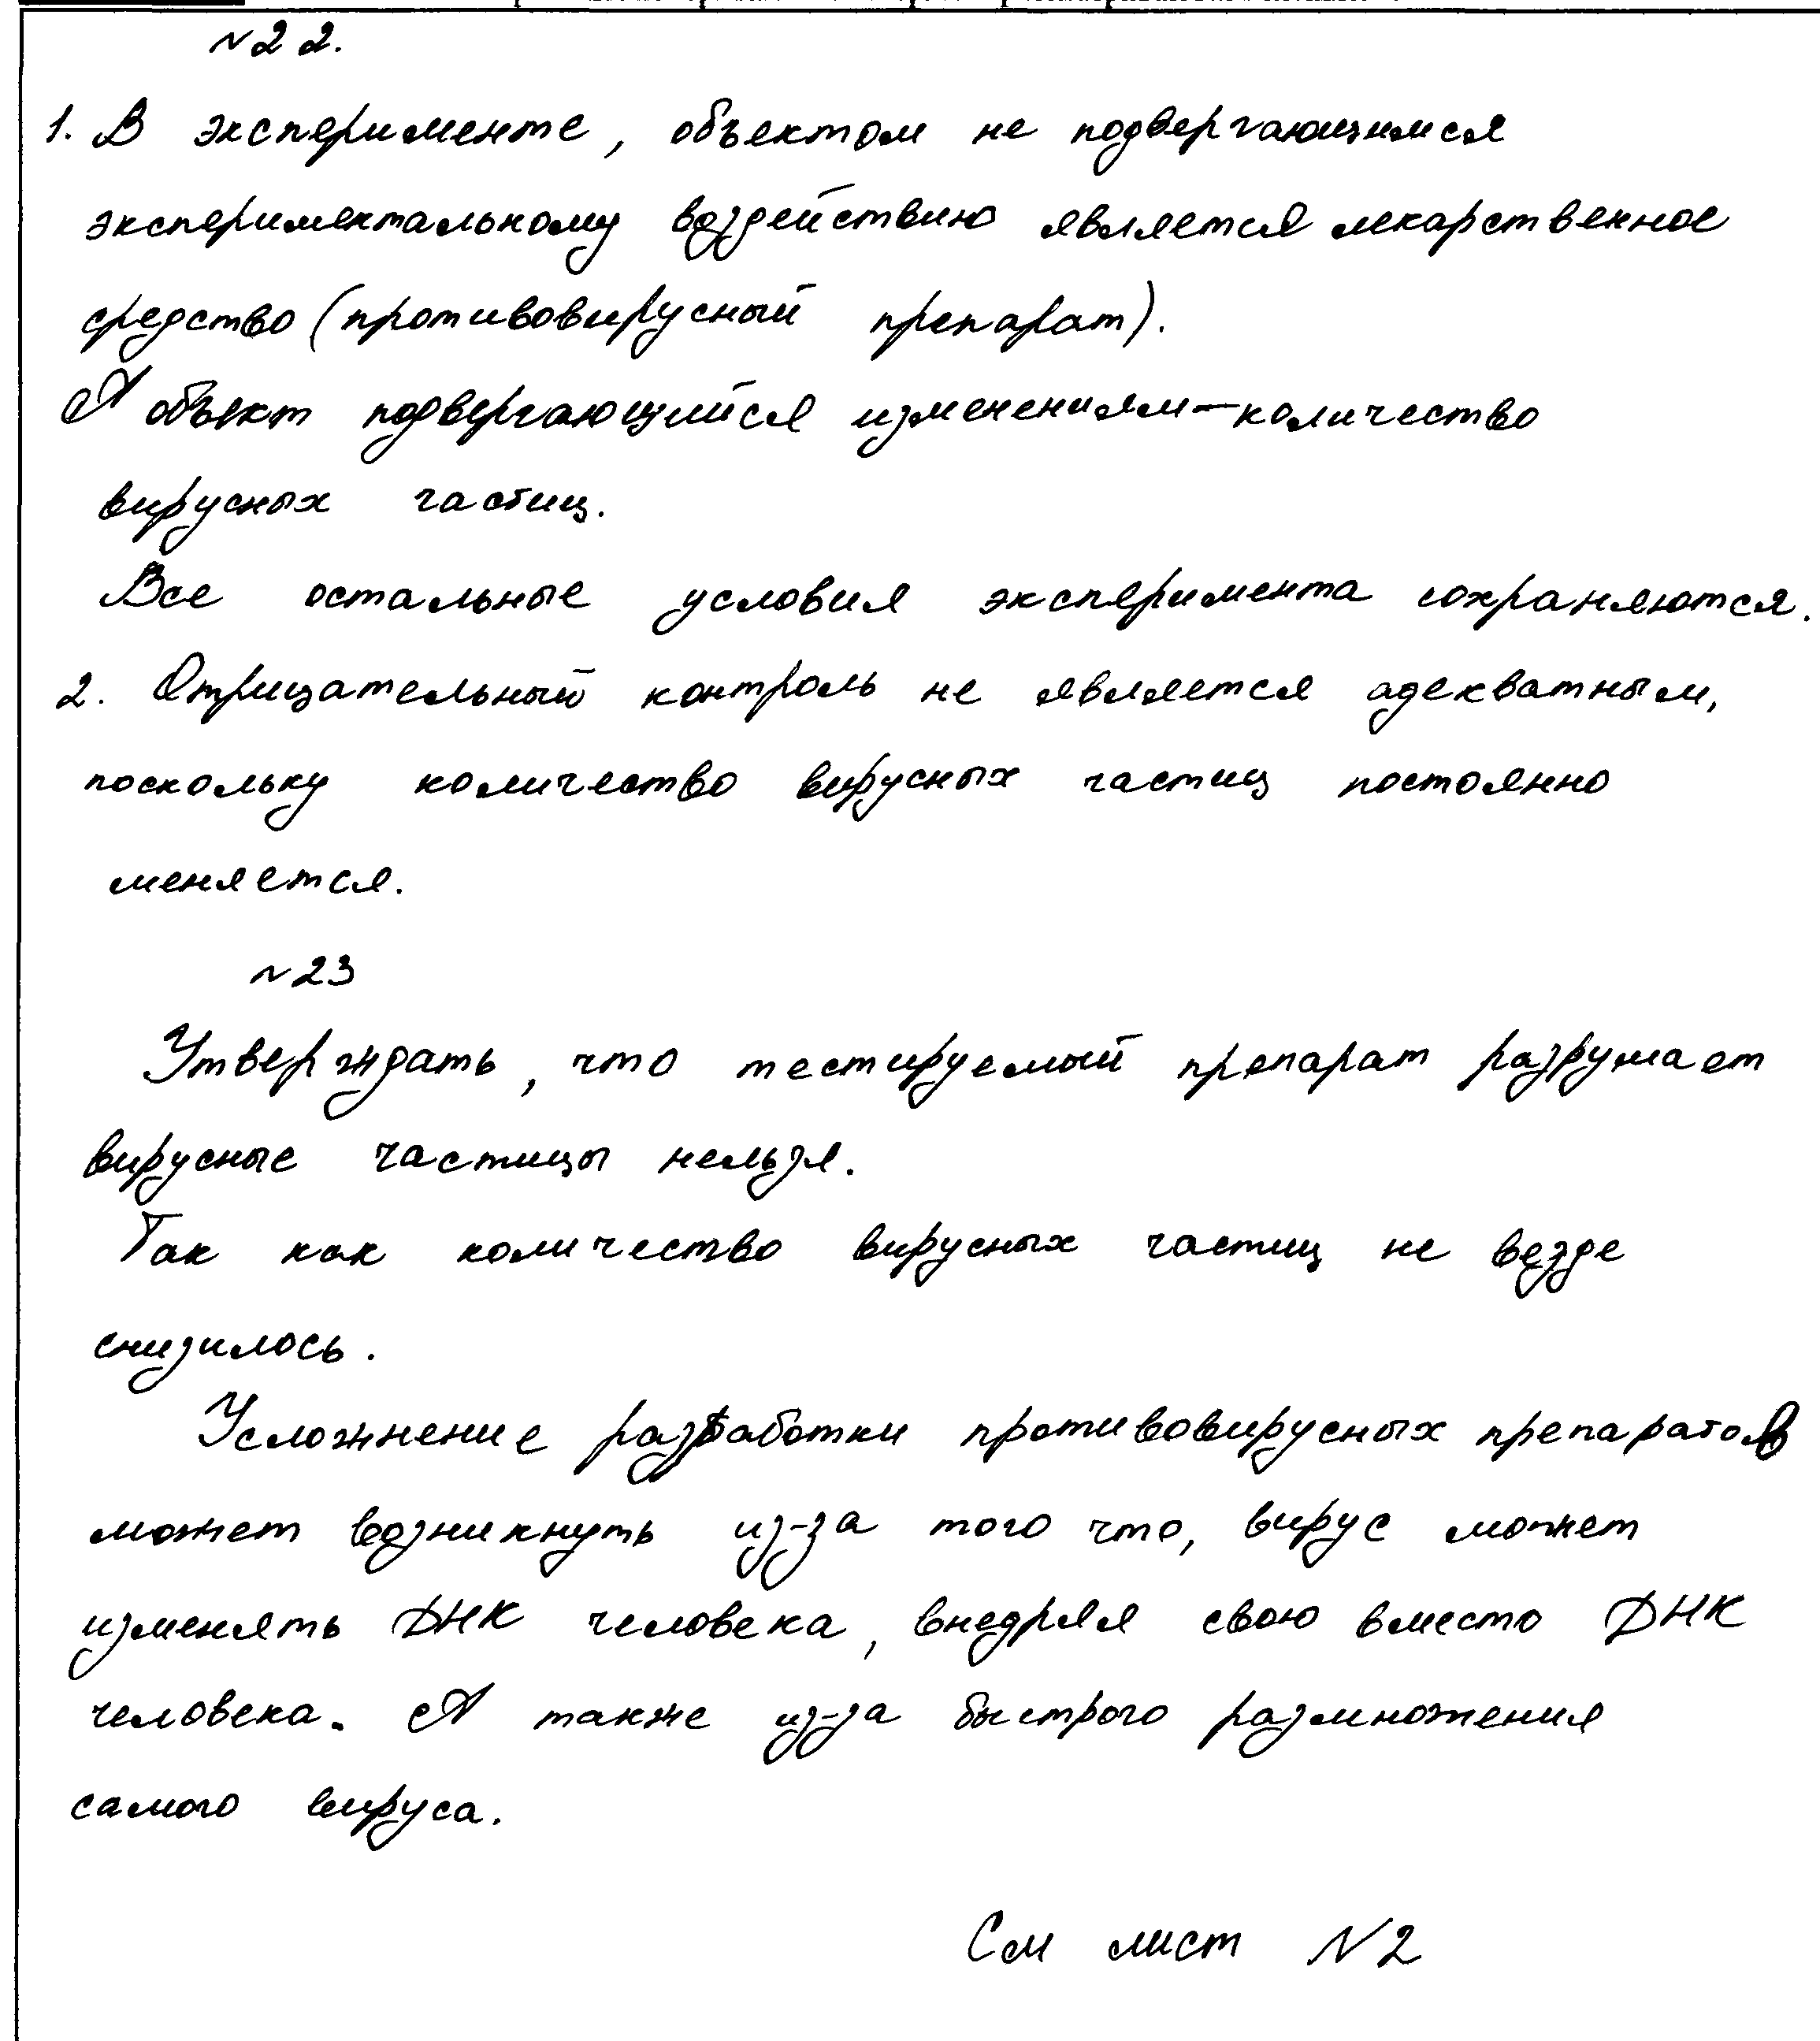 №22.
1. В эксперименте, объектом не подвергающимся
экспериментальному воздействию является лекарственное
средство (противовирусный препарат).
А объект подвергающийся изменениям – количество
вирусных частиц.
Все остальные условия эксперимента сохраняются.
2. Отрицательный контроль не является адекватным,
поскольку количество вирусных частиц постоянно
меняется.
№23
Утверждать, что тестируемый препарат разрушает
вирусные частицы нельзя.
Так как количество вирусных частиц не везде
снизилось.
Усложнение разработки противовирусных препаратов
может возникнуть из-за того что, вирус может
изменять ДНК человека, внедряя свою вместо ДНК
человека. А также из-за быстрого размножения
самого вируса.
См лист №2